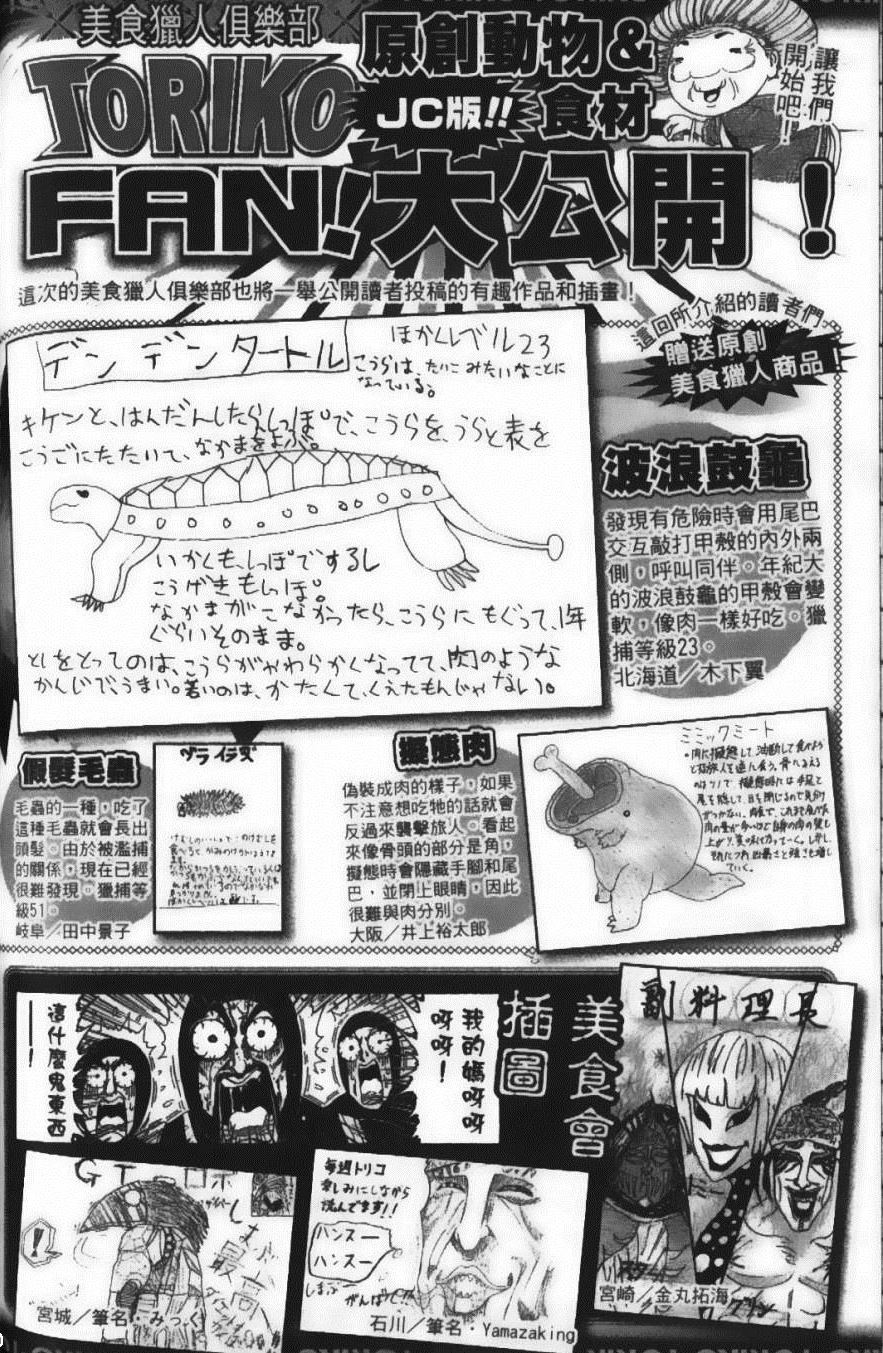 美食獵人俱樂部
TORIKO
原創動物&
JC版!!
食材
FAN!大公開!
讓我們
開始吧!
這次的美食獵人俱樂部也將一舉公開讀者投稿的有趣作品和插畫!
這回所介紹的讀者們
贈送原創
美食獵人商品!
デンデンタートル
ほかくレベル23
こうらは、たいこみたいなことに
なっている。
キケンと、はんだんしたら、しっぽで、こうらを、うらと表を
こうごにたたいて、なかまをよぶ。
いかくも、しっぽでするし
こうげきもしっぽ。
なかまがこなかったら、こうらにもぐって、1年
ぐらいそのまま。
としをとってのは、こうらがやわらかくなってて、肉のような
かんじで、うまい。若いのは、かたくて、くえたもんじゃない。
波浪鼓龜
發現有危險時會用尾巴
交互敲打甲殼的內外兩
側,呼叫同伴。年紀大
的波浪鼓龜的甲殼會變
軟,像肉一樣好吃。獵
捕等級23。
北海道/木下翼
假髮毛蟲
毛蟲的一種,吃了
這種毛蟲就會長出
頭髮。由於被濫捕
的關係,現在已經
很難發現。獵捕等
級51。
岐阜/田中景子
擬態肉
偽裝成肉的樣子,如果
不注意想吃牠的話就會
反過來襲擊旅人。看起
來像骨頭的部分是角,
擬態時會隱藏手腳和尾
巴,並閉上眼睛,因此
很難與肉分別。
大阪/井上裕太郎
ミミックミート
美食會
插圖
我的媽呀呀
呀呀!
這什麼鬼東西
——!
副料理長
宮崎/金丸拓海
GTロボ
最高
宮城/筆名・みっく
毎週トリコ
楽しみにしながら
読んでます!!
ハンスー
ハンスー
石川/筆名・Yamazaking